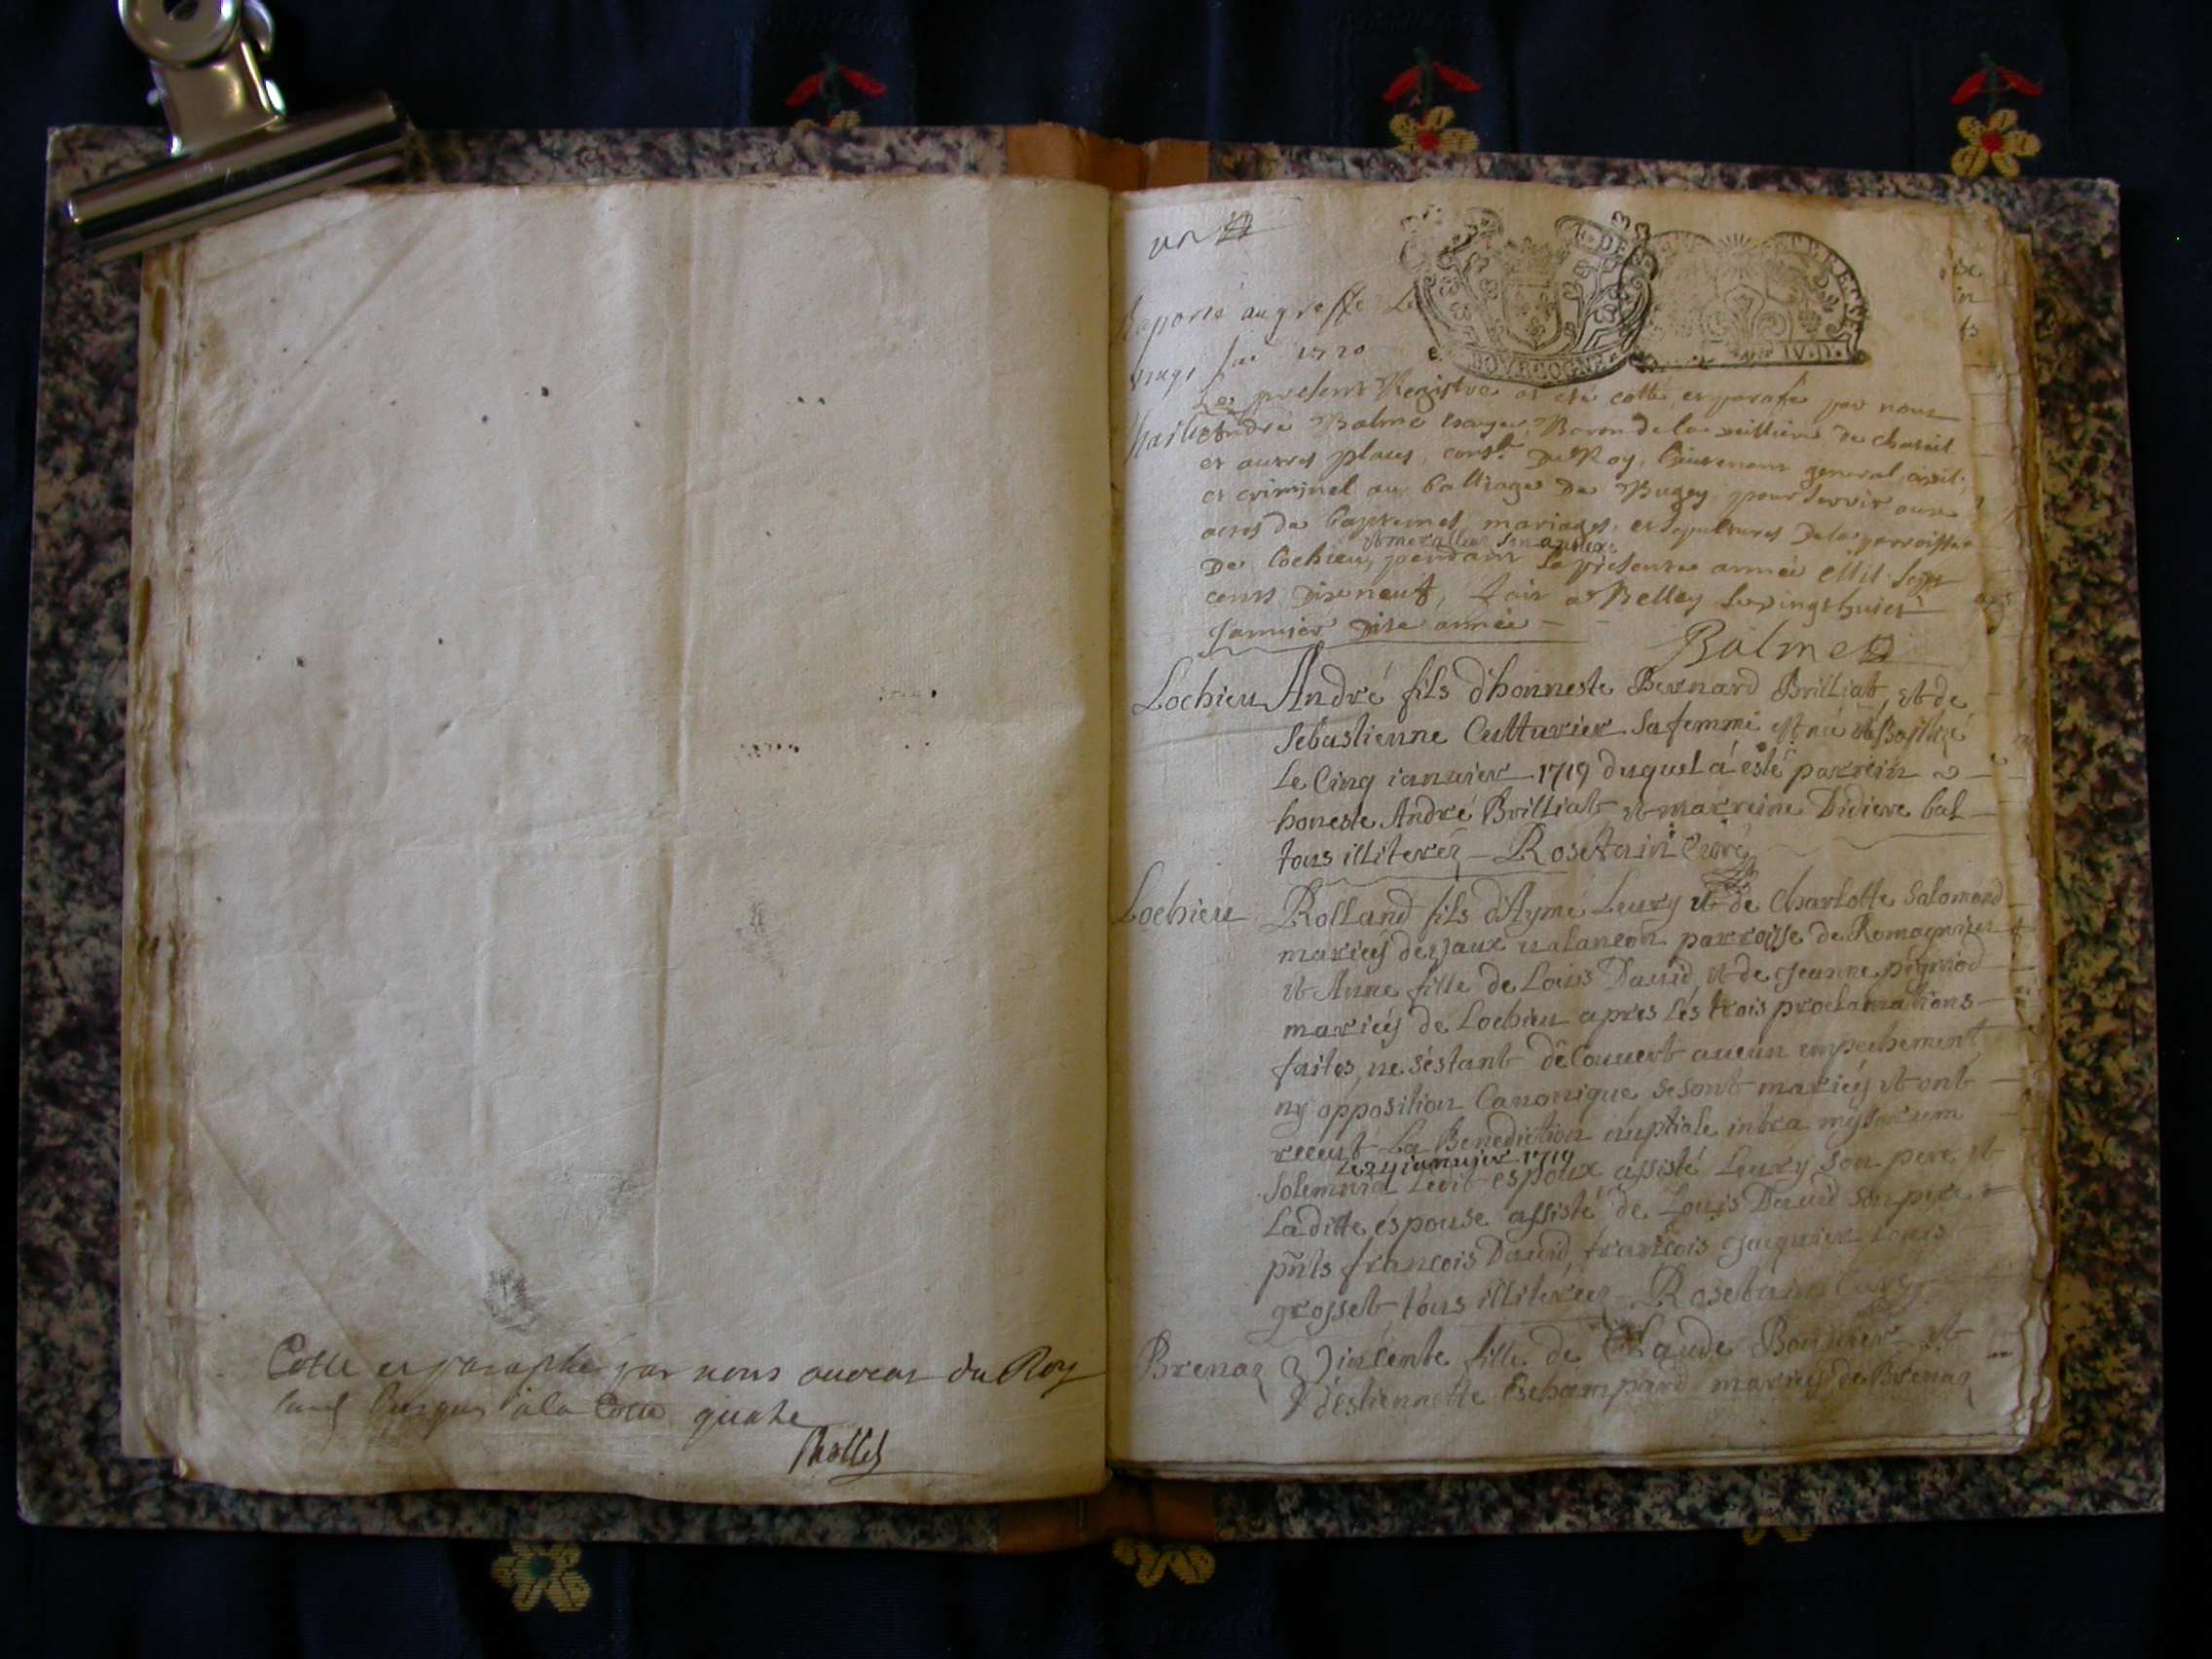 Cotté et paraphé par nous avocat du Roy
à la Cotte quatre
un
raporté au greffe Le
1720
DE
BOVRGOGNE
ET BRESSE
IV. D.
Le present Registre at esté cotté, et parafé par nous
André Balme Baron de la
et autres places, cons.er Du Roy, lieutenant general civil,
et criminel au balliage De Bugey, pour servir aux
actes de baptemes, mariages, et sepultures De la parroisse
et
De Lochieu, pendant la presente année Mil sept
cents dix neuf, fait a Belley le vingthuict
Janvier dite année
Balme
Lochieu André fils d'honneste Bernard Brilliat, et de
Sebastienne Culturier sa femme est né et Baptizé
Le Cinq ianvier 1719 duquel á esté parrein
honeste André Brilliat et marreine Didiere bal
tous illiteréz Rosetain Curé
Lochieu Rolland fils d'Aymé Leury et de Charlotte Salomond
mariés de parroisse de Romagnieu
et Anne fille de Loüis Dauid, et de Jeanne
mariés de Lochieu apres les trois proclamations
faites, ne s'éstant décovvert aucun empechement
ny opposition Canonique se sont mariés et ont
receut La Benediction nuptiale intra missarum
Le 24 ianvier 1719
Solemnia Ledit espoux assisté Leury son pere et
Laditte éspouse assisté de Loüis Dauid son pere
pnts francois Dauid, francois Jaquier Louis
grosset tous illiteréz Rosetain Curé
Brenaz Vincente fille de Claude Bouvier et
d'éstiennette Eschampard mariés de Brenaz